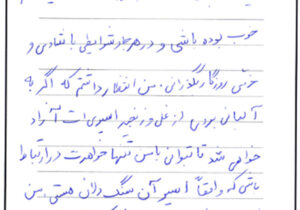 خوب بوده باشی و در هر جا و شرایطی با شادی و
خوشی روزگار بگذرانی. من انتظار داشتم که اگر به
آلمان بروی از غل و زنجیر اسیری ات آزاد
خواهی شد تا بتوان با من تنها خواهرت در ارتباط
باشی که واقعاً اسیر آن سنگ دلان هستی. من